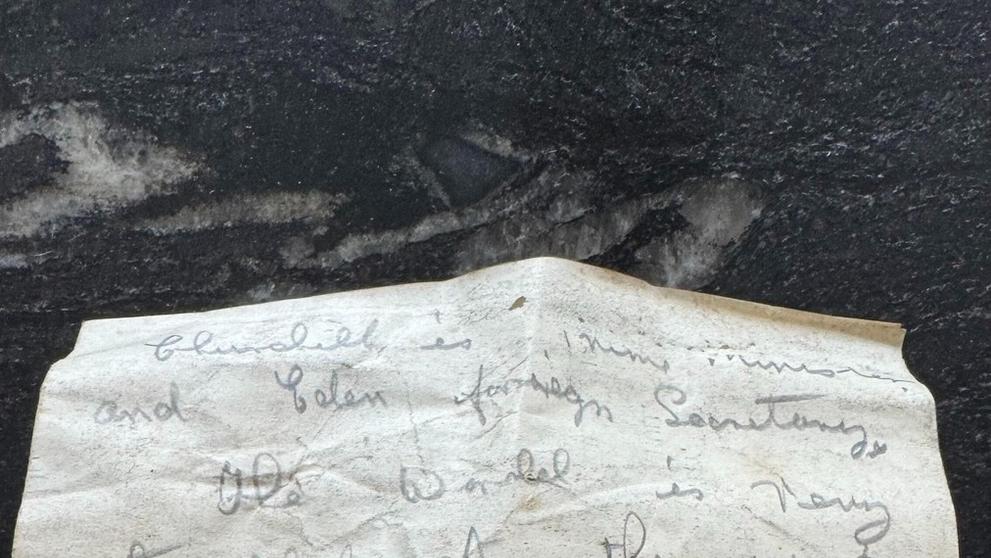 Churchill is Prime Minister
and Eden foreign Secretary
The World is very